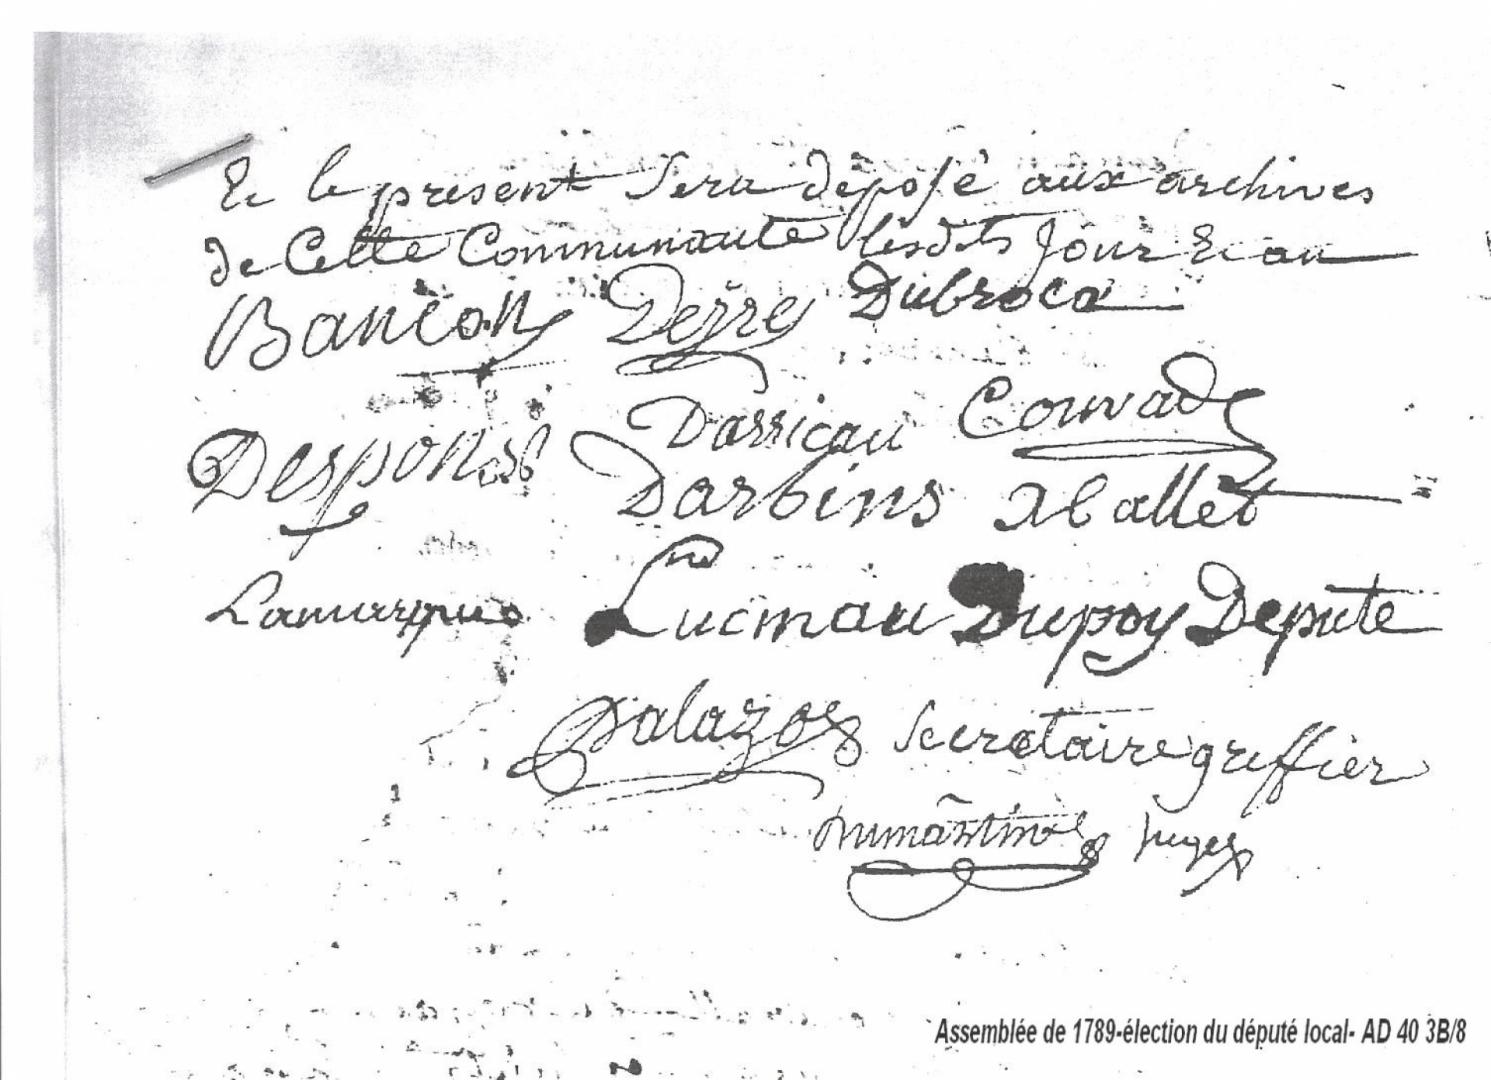 Et le present Sera déposé aux archives
de Cette Communauté lesdits Jour Et an
Bancon Dezres Dubroca
Darricau Couvade
Desponst Darbins Ballet
Lamarque Lucmau Dupoy Deputé
Dalazos Secretaire greffier
Dumartin juge
Assemblée de 1789-élection du député local- AD 40 3B/8